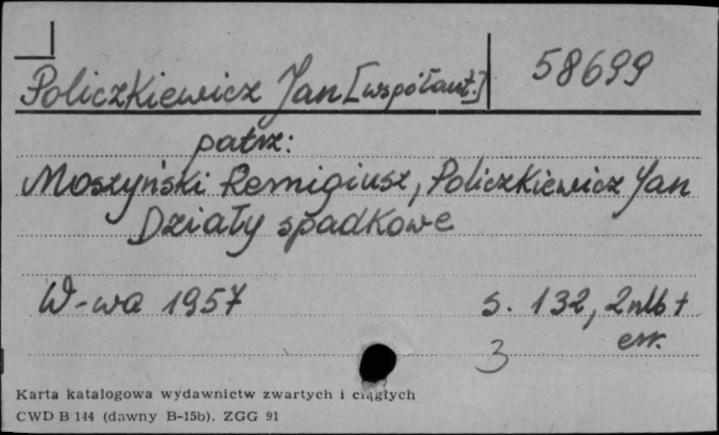 Policzkiewicz Jan [współaut.] 58699
patrz:
Moszyński Remigiusz, Policzkiewicz Jan
Działy spadkowe
W-wa 1957 s. 132, 2nlb +
err.
3
Karta katalogowa wydawnictw zwartych i ciągłych
CWD B 144 (dawny B-15b). ZGG 91